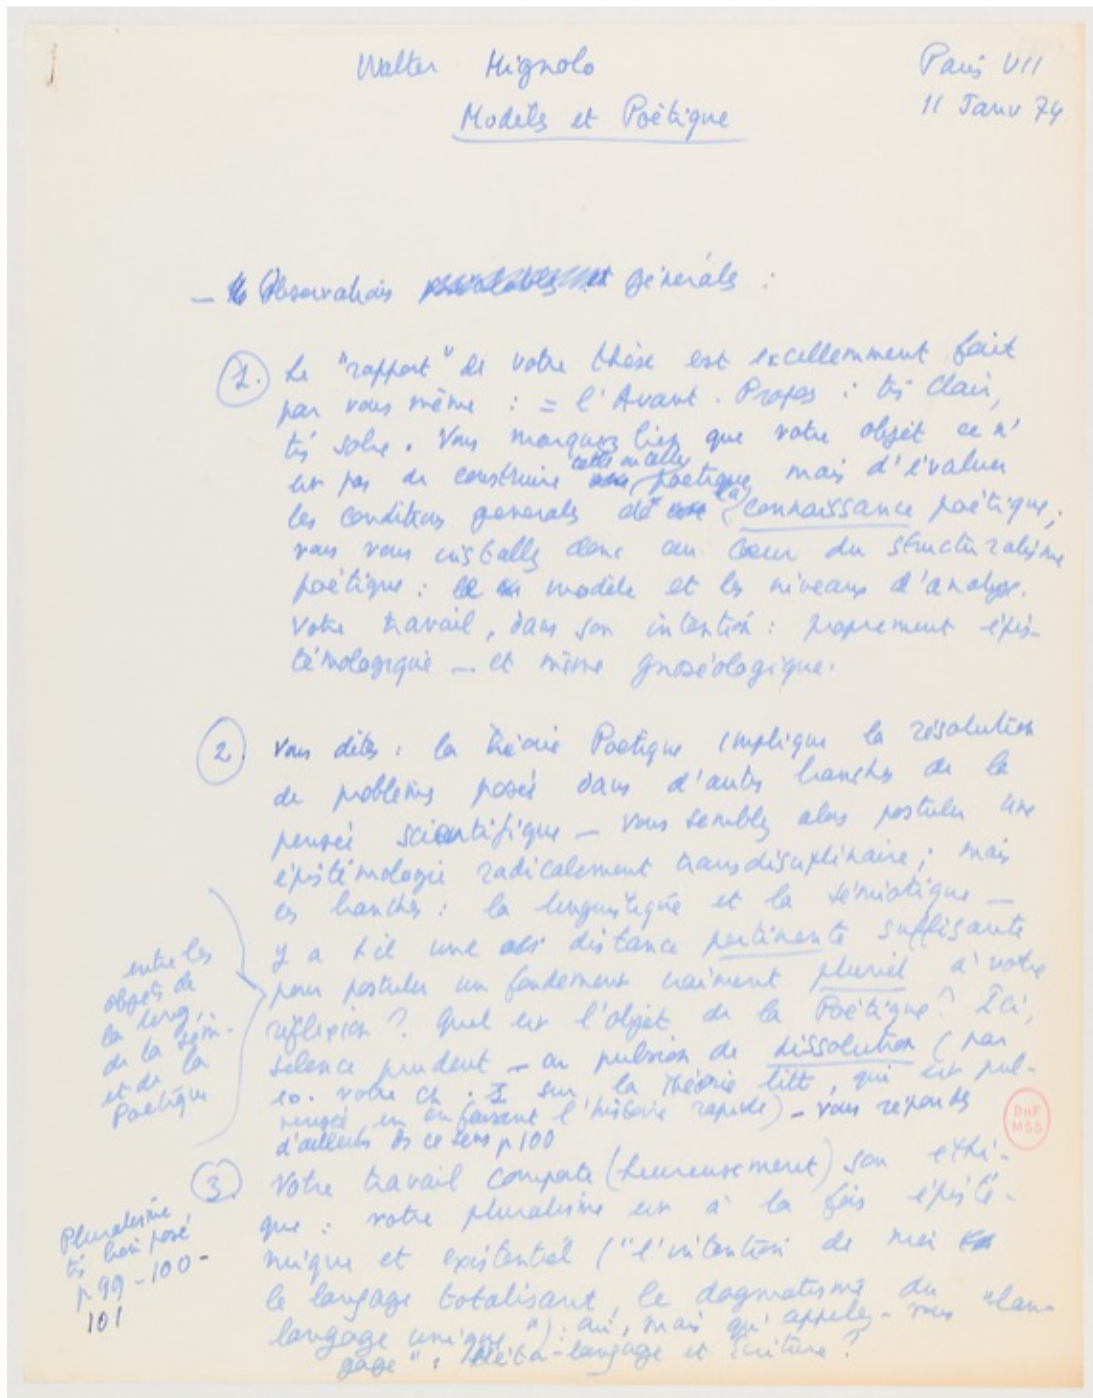 Walter Mignolo
Modèles et Poétique
Paris VII
11 Janv 74
— Observations générales :
1. Le "rapport" de votre thèse est excellemment fait
par vous même : = l'Avant-Propos : très clair,
très sobre. Vous marquez bien que votre objet ce n'
est pas de construire telle ou telle poétique, mais d'évaluer
les conditions générales de la connaissance poétique ;
vous vous installez donc au cœur du structuralisme
poétique : le modèle et les niveaux d'analyse.
Votre travail, dans son intention : proprement épis-
témologique — et même gnoséologique.
2. Vous dites : la théorie Poétique implique la résolution
de problèmes posés dans d'autres branches de la
pensée scientifique — vous semblez alors postuler une
épistémologie radicalement transdisciplinaire ; mais
ces branches : la linguistique et la sémiotique —
y a t-il une distance pertinente suffisante
pour postuler un fondement vraiment pluriel à votre
réflexion ? Quel est l'objet de la Poétique ? Ici,
silence prudent — ou pulsion de dissolution (par
ex. votre Ch. I sur la Théorie litt, qui est
en en faisant l'histoire rapide) — vous répondez
d'ailleurs ds ce sens p 100
entre les
objets de
la ling,
de la sém-
et de la
Poétique
3. Votre travail comporte (heureusement) son éthi-
que : votre pluralisme est à la fois épisté-
mique et existentiel ("l'intention de
le langage totalisant, le dogmatisme du
langage unique") : oui, mais qu'appelez-vous "lan-
gage" : Méta-langage et Écriture ?
Pluralisme,
très bien posé
p 99 - 100 -
101
BnF
MSS